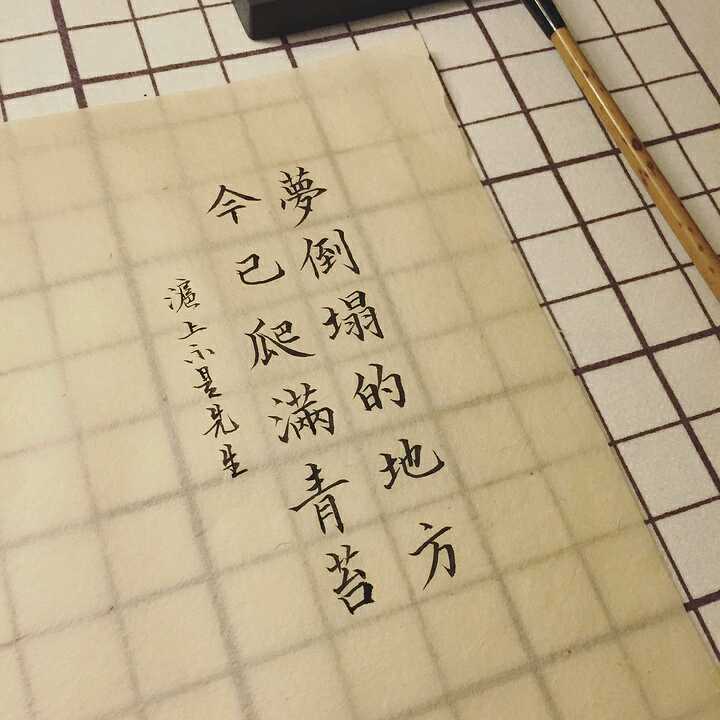 夢倒塌的地方
今已爬滿青苔
滬上不是先生